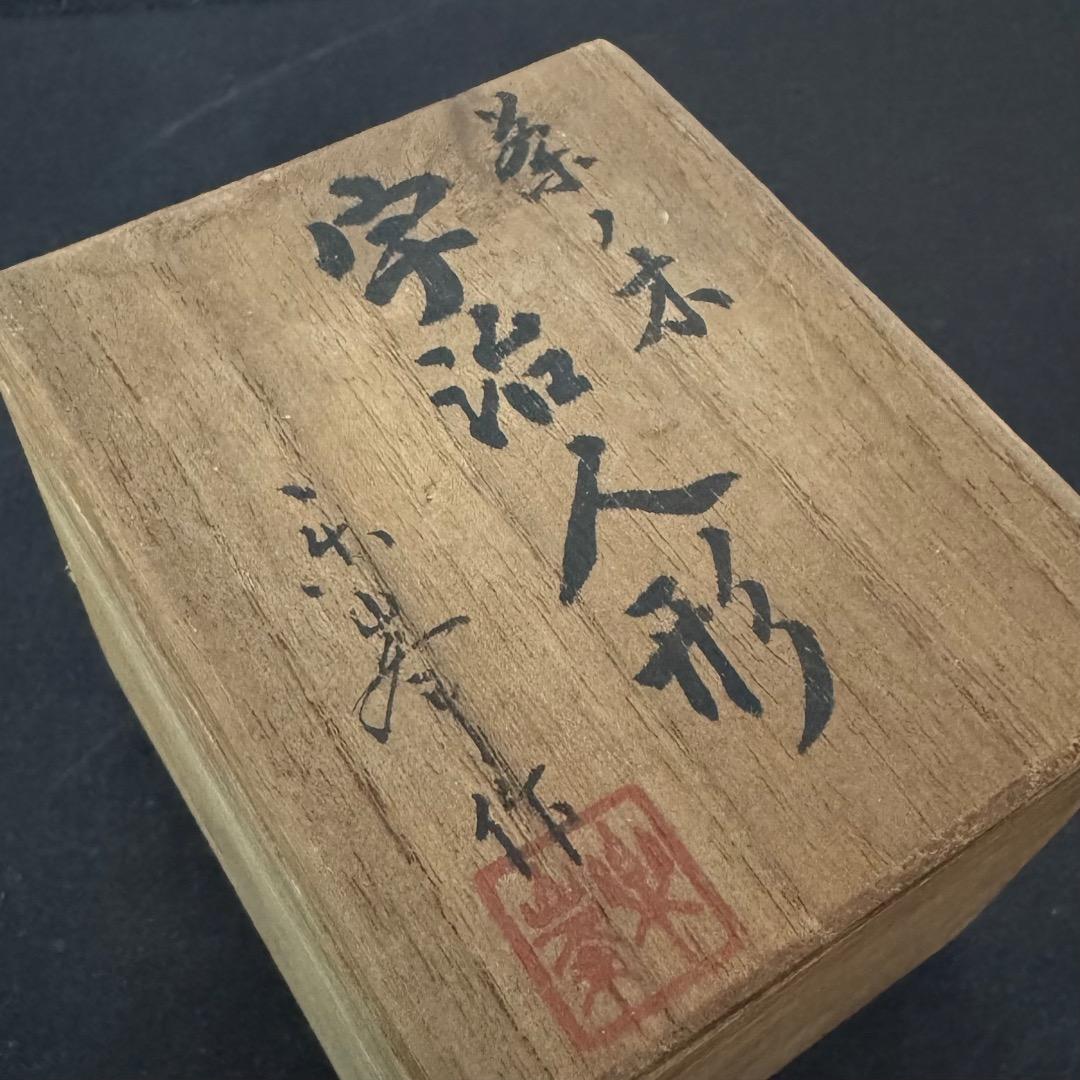 茶ノ木
宇治人形
作